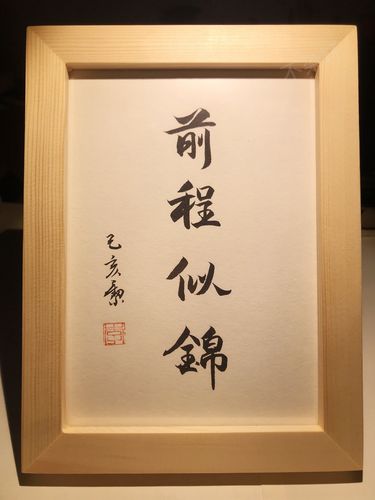 前程似錦
己亥